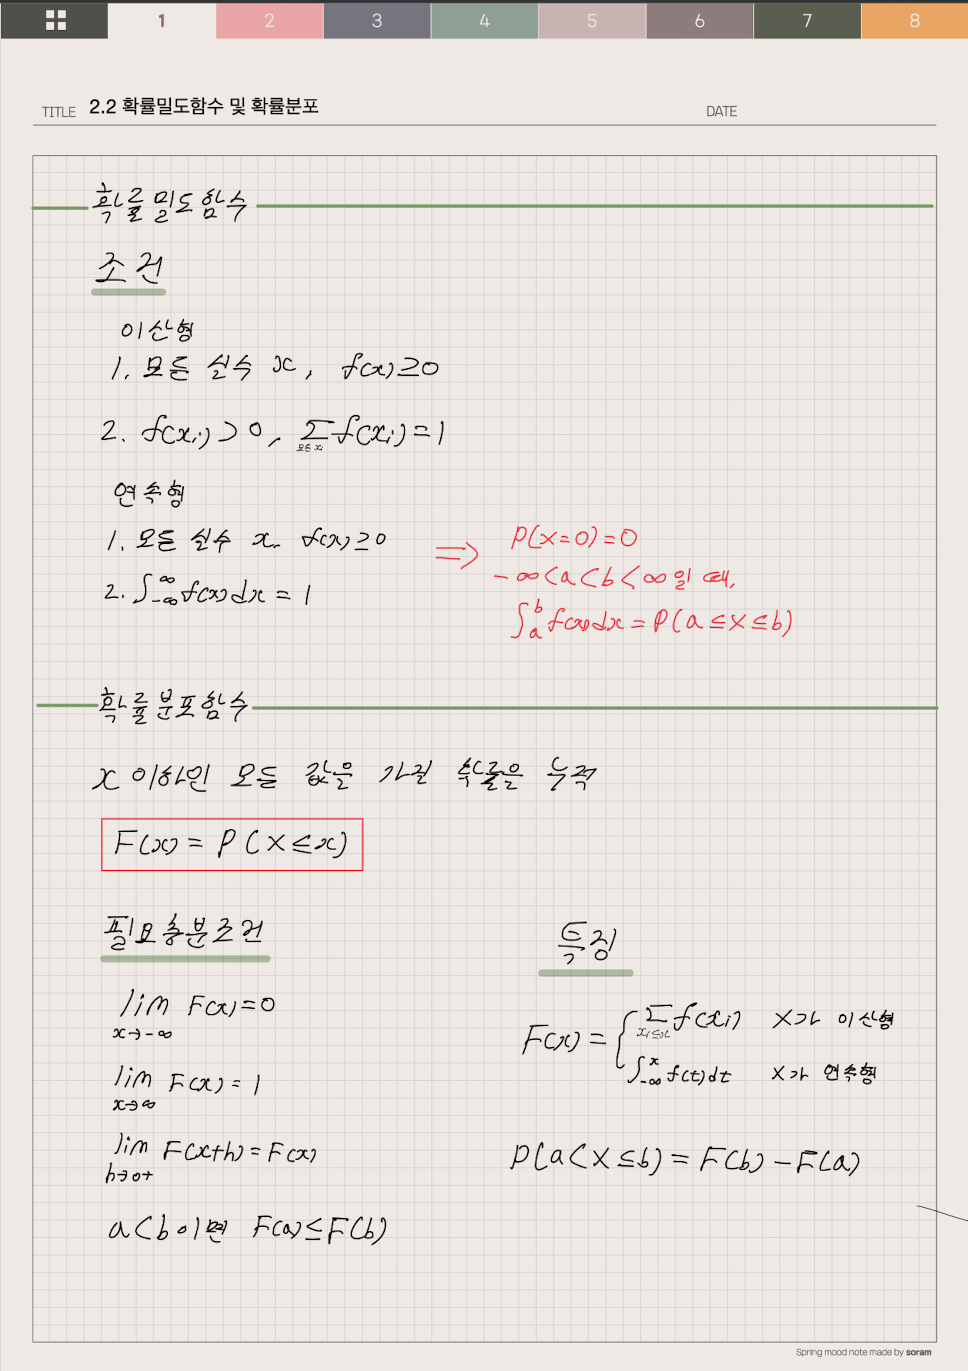 1 2 3 4 5 6 7 8
TITLE 2.2 확률밀도함수 및 확률분포 DATE
확률밀도함수
조건
이산형
1. 모든 실수 x, f(x)≥0
2. f(xᵢ)>0, Σ f(xᵢ)=1
모든 xᵢ
연속형
1. 모든 실수 x, f(x)≥0
2. ∫_{-∞}^{∞} f(x)dx = 1
⇒ P(X=0)=0
-∞<a<b<∞일 때,
∫_a^b f(x)dx = P(a≤X≤b)
확률분포함수
x 이하인 모든 값을 가질 확률을 누적
F(x) = P(X≤x)
필요충분조건
lim F(x)=0
x→-∞
lim F(x)=1
x→∞
lim F(x+h)=F(x)
h→0+
a<b이면 F(a)≤F(b)
특징
F(x) = { Σ_{xᵢ≤x} f(xᵢ) X가 이산형
∫_{-∞}^{x} f(t)dt X가 연속형
P(a<X≤b) = F(b)-F(a)
Spring mood note made by soram